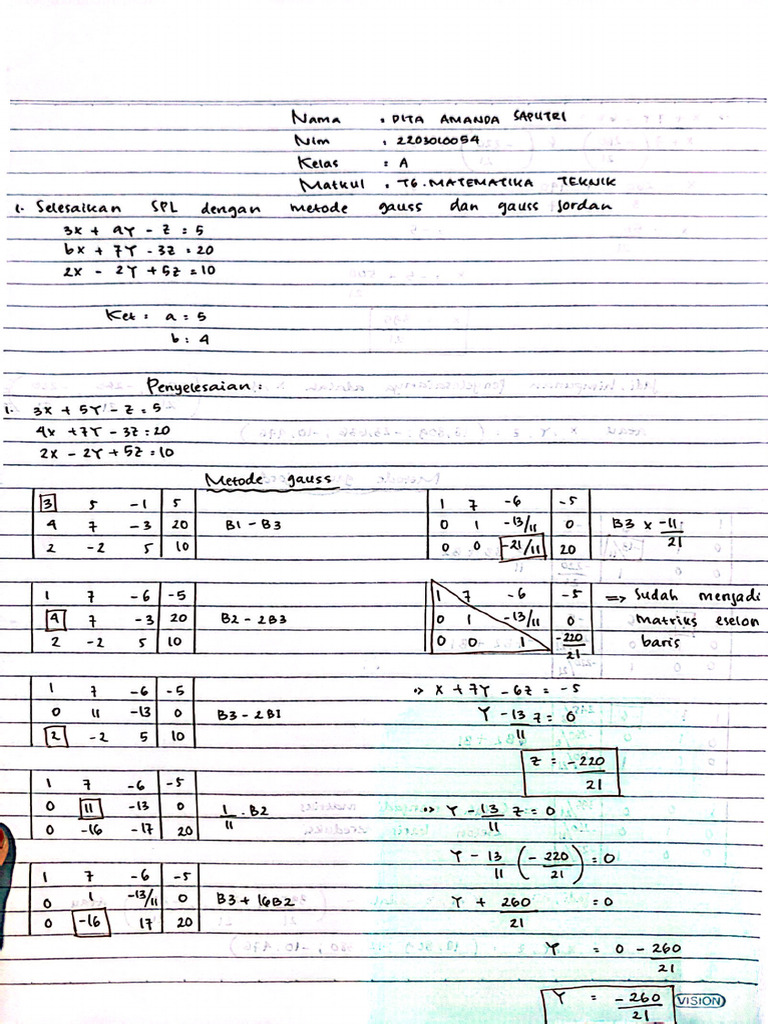 Nama : DITA AMANDA SAPUTRI
Nim : 2203010054
Kelas : A
Matkul : T6. MATEMATIKA TEKNIK
1. Selesaikan SPL dengan metode gauss dan gauss Jordan
3X + aY - Z = 5
bX + 7Y - 3Z = 20
2X - 2Y + 5Z = 10
Ket : a = 5
b : 4
Penyelesaian :
1. 3X + 5Y - Z = 5
4X + 7Y - 3Z = 20
2X - 2Y + 5Z = 10
Metode gauss
3 5 -1 5
4 7 -3 20 B1 - B3
2 -2 5 10
1 7 -6 -5
4 7 -3 20 B2 - 2B3
2 -2 5 10
1 7 -6 -5
0 11 -13 0 B3 - 2B1
2 -2 5 10
1 7 -6 -5
0 11 -13 0 1/11 . B2
0 -16 -17 20
1 7 -6 -5
0 1 -13/11 0 B3 + 16B2
0 -16 17 20
1 7 -6 -5
0 1 -13/11 0 B3 x -11/21
0 0 -21/11 20
1 7 -6 -5 => Sudah menjadi
0 1 -13/11 0 matriks eselon
0 0 1 -220/21 baris
X + 7Y - 6Z = -5
Y - 13/11 Z = 0
Z = -220/21
Y - 13/11 Z = 0
Y - 13/11 (-220/21) = 0
Y + 260/21 = 0
Y = 0 - 260/21
Y = -260/21
VISION